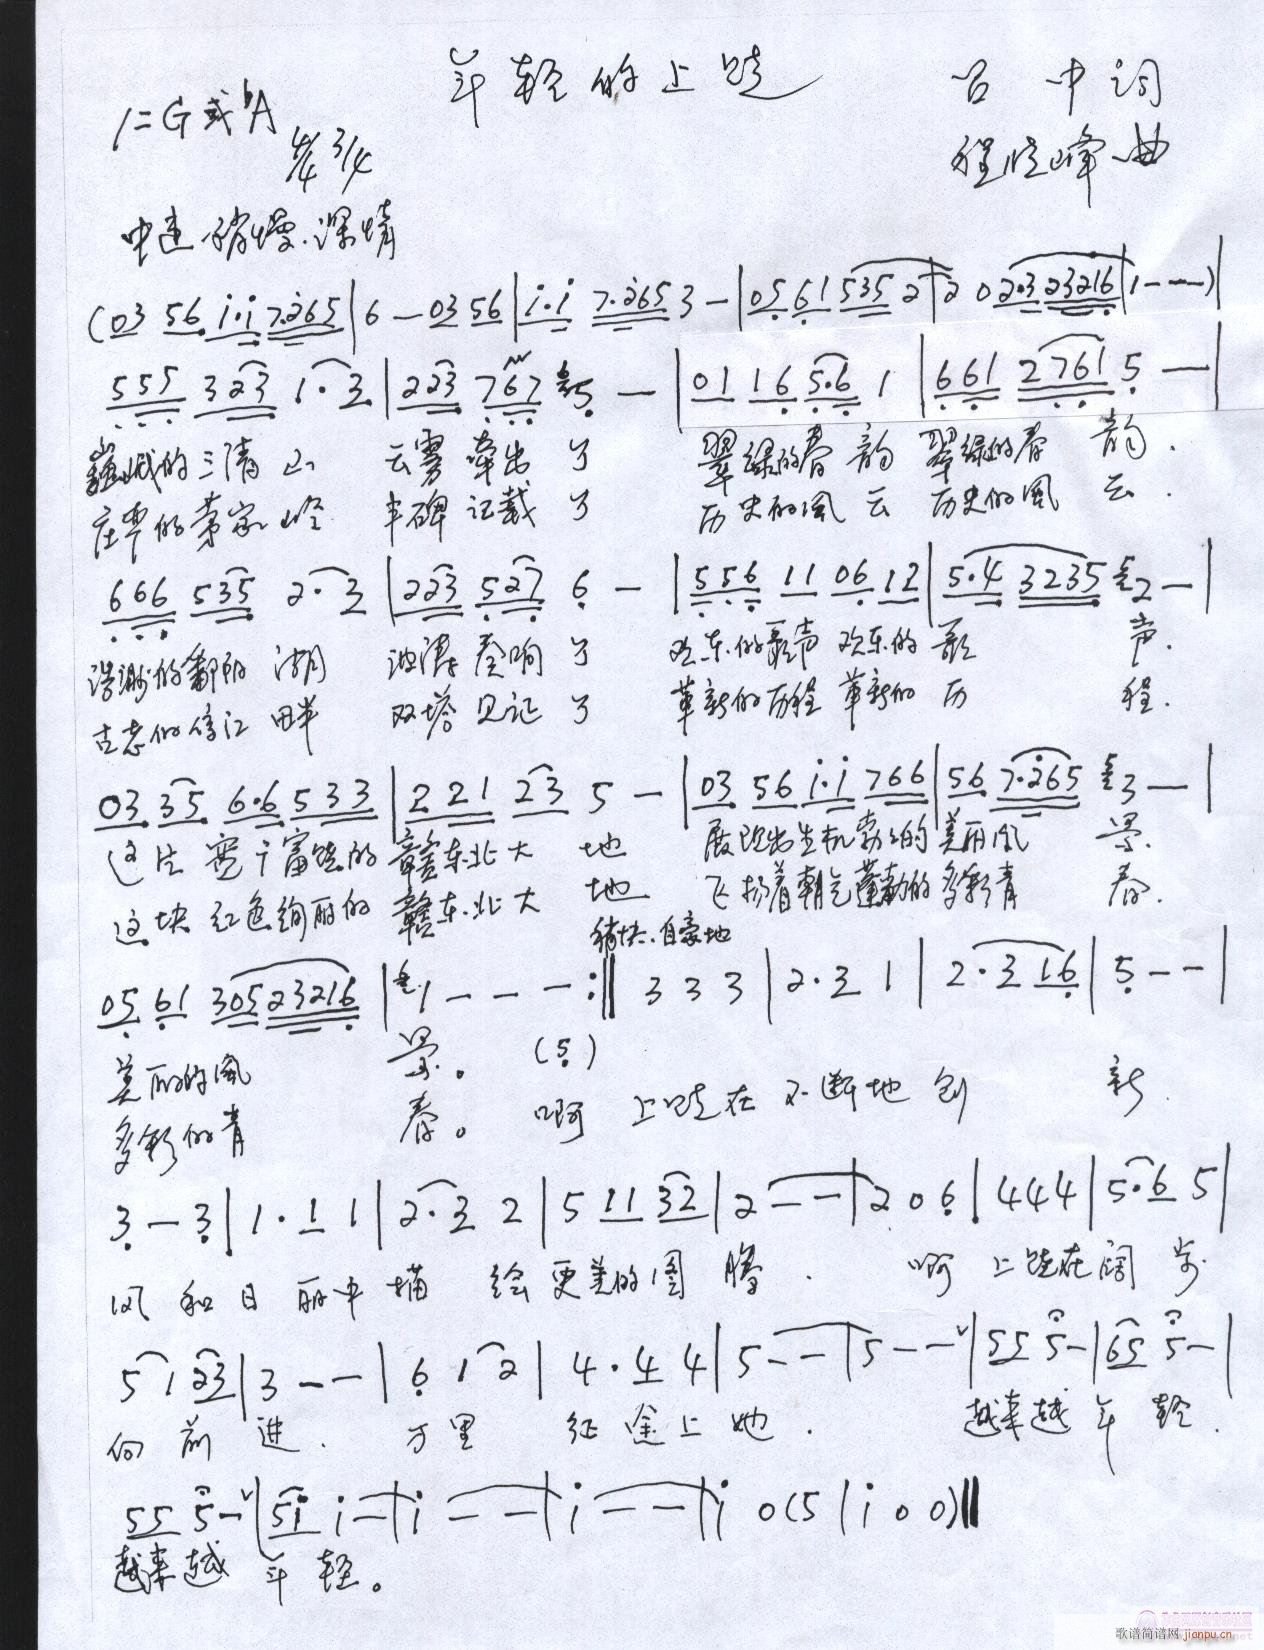 年轻的上饶
吕中词
1=G或♭A
4/4 3/4
程晓峰曲
中速 稍慢.深情
(03 56 i·i 7·265 | 6 — 03 56 | i·i 7·265 3 — | 05 61 535 2 | 2 0 2·3 23216 | 1 — — —)
555 323 1·3 | 223 767 5 — | 01 16 5·6 1 | 661 2761 5 — |
巍峨的三清山 云雾牵出了 翠绿的春韵 翠绿的春韵.
庄严的葛家岭 丰碑记载了 历史的风云 历史的风云.
666 535 2·3 | 223 527 6 — | 556 11 06 12 | 5·4 3235 2 — |
浩渺的鄱阳湖 波涛奏响了 欢乐的歌声 欢乐的歌声.
古老的信江畔 双塔见证了 革新的历程 革新的历程.
03 35 6·6 533 | 221 23 5 — | 03 56 i·i 766 | 56 7·265 3 — |
这片宽广富饶的赣东北大地 展现出生机勃勃的美丽风景.
这块红色绚丽的赣东北大地 飞扬着朝气蓬勃的多彩青春.
稍快.自豪地
05 61 305 23216 | 1 — — — :‖ 3 3 3 | 2·3 1 | 2·3 16 | 5 — — |
美丽的风景。 (5)
多彩的青春。 啊 上饶在不断地创新.
3 — 3 | 1·1 1 | 2·3 2 | 5 11 32 | 2 — — | 2 0 6 | 4 4 4 | 5·6 5 |
风和日丽中描绘更美的图腾. 啊 上饶在阔步
5 1 23 | 3 — — | 6 1 2 | 4·4 4 | 5 — — | 5 — — | 55 5 — | 65 5 — |
向前进. 万里征途上她. 越来越年轻.
55 5 — | 5i i — | i — — | i — — | i 0 (5 | i 0 0) ‖
越来越年轻。
歌谱简谱网 jianpu.cn